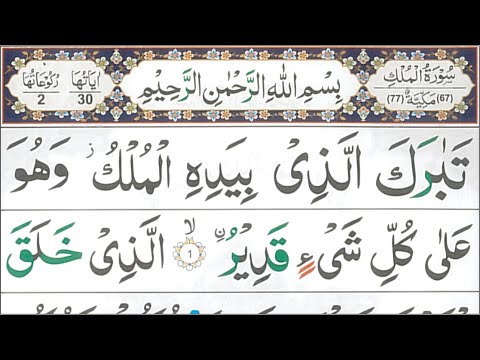 سُوْرَةُ الْمُلْكِ
(67) مَكِّيَّةٌ (77)
بِسْمِ اللّٰهِ الرَّحْمٰنِ الرَّحِيْمِ
اٰيَاتُهَا 30
رُكُوْعَاتُهَا 2
تَبٰرَكَ الَّذِىْ بِيَدِهِ الْمُلْكُ ز وَهُوَ
عَلٰى كُلِّ شَىْءٍ قَدِيْرُ ۨ ۙ 1 الَّذِىْ خَلَقَ